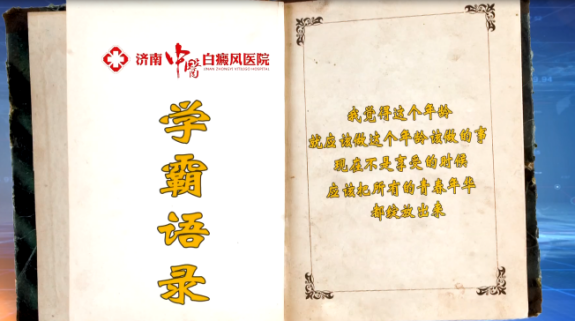 济南中醫白癜风医院
JINAN ZHONGYI VITILIGO HOSPITAL
学
霸
语
录
我觉得这个年龄
就应该做这个年龄该做的事
现在不是享受的时候
应该把所有的青春年华
都绽放出来